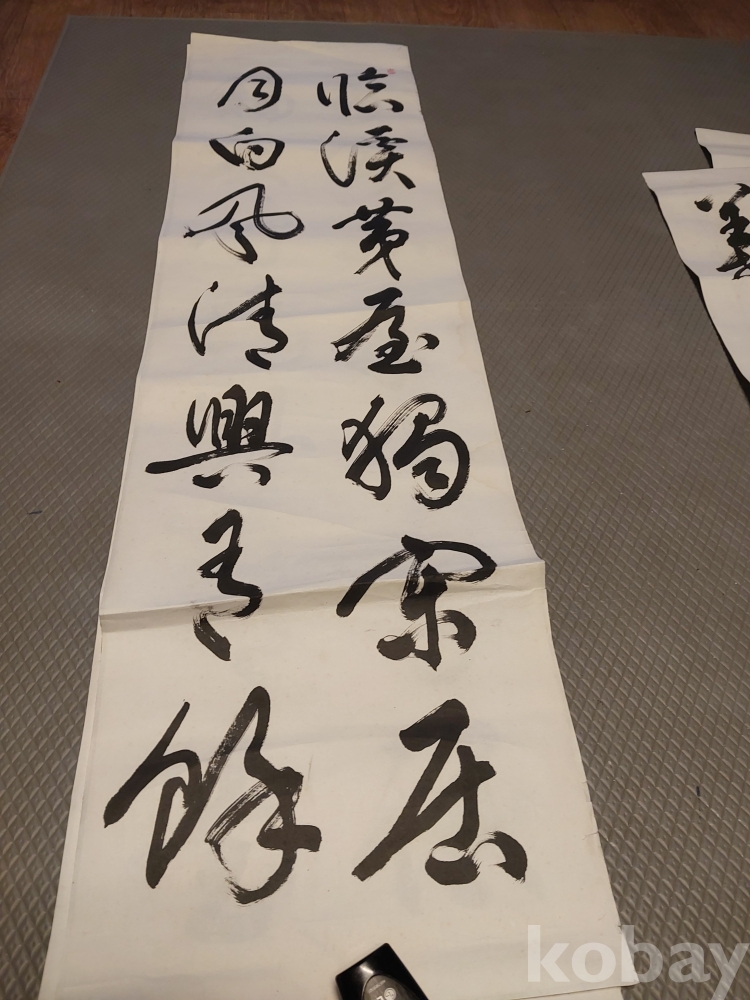 臨溪茅屋獨閑居
月白風清興有餘
kobay